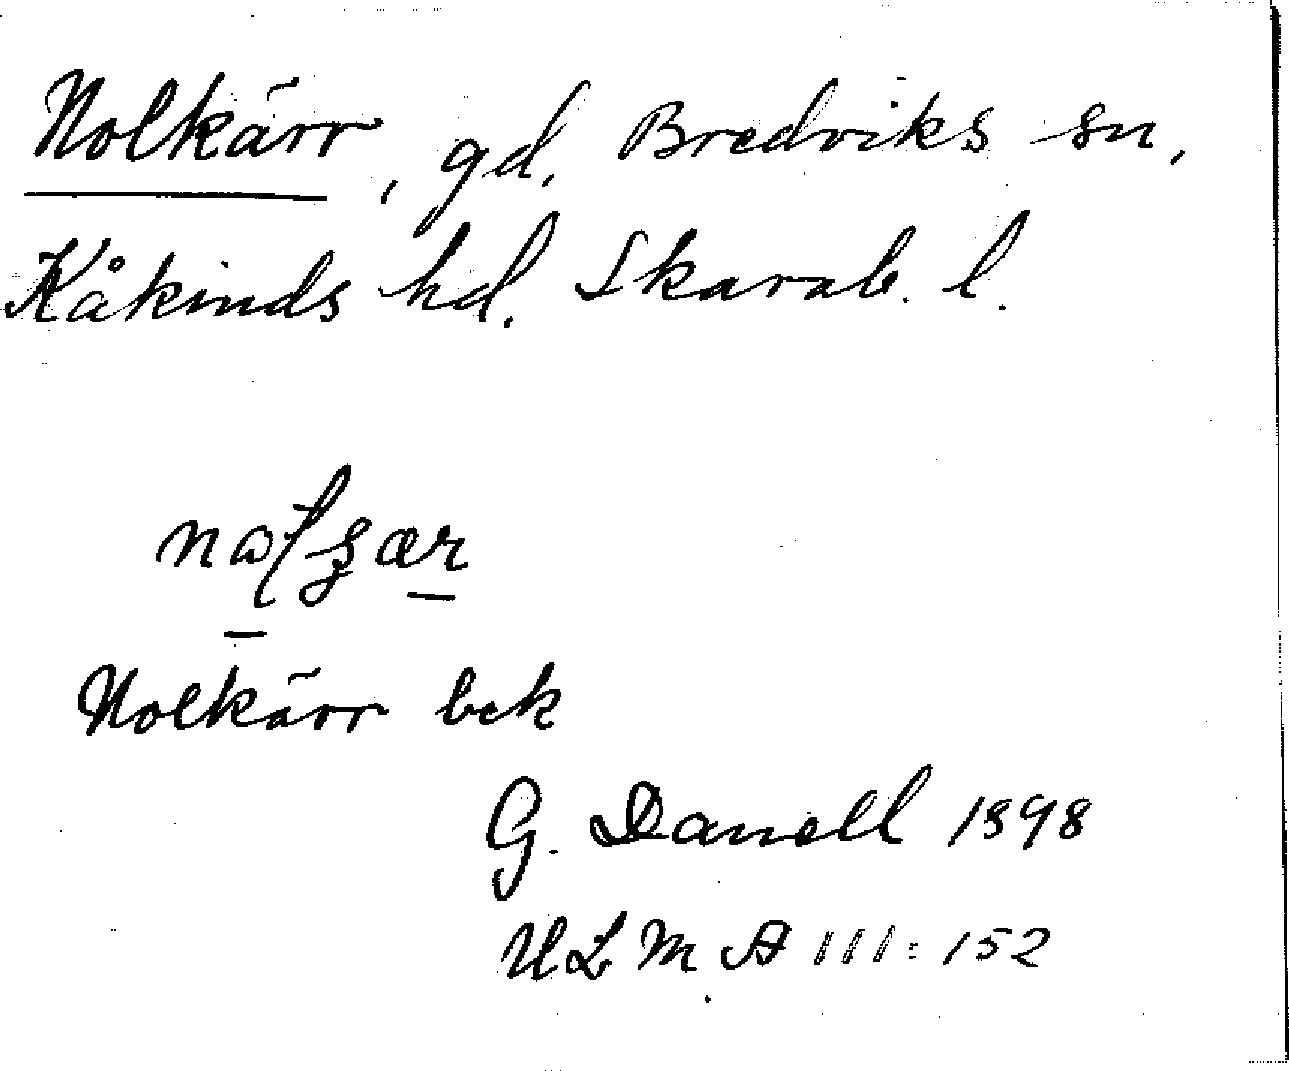 Nolkärr, gd, Bredviks sn,
Kåkinds hd. Skarab. l.
Nolkärr bck
G. Danell 1898
ULMA 111:152